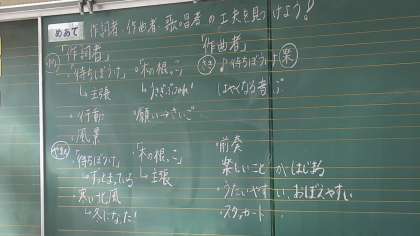 めあて 作詞者・作曲者・歌唱者の工夫を見つけよう!
「作詞者」
「作曲者」
・「待ちぼうけ」 ・「木の根っこ」
♪待ちぼうけ
↳主張
・行動 願い→さいご
・風景
・「待ちぼうけ」 ・「木の根っこ」 ・前奏
↳ずっとまってる ↳主張 楽しいことがはじまる
・寒い北風 ・うたいやすい、おぼえやすい
↳冬になった! ・スタッカート